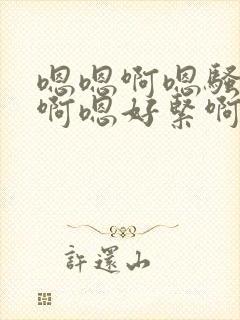 嗯嗯啊嗯骚
啊嗯好紧啊
許還山